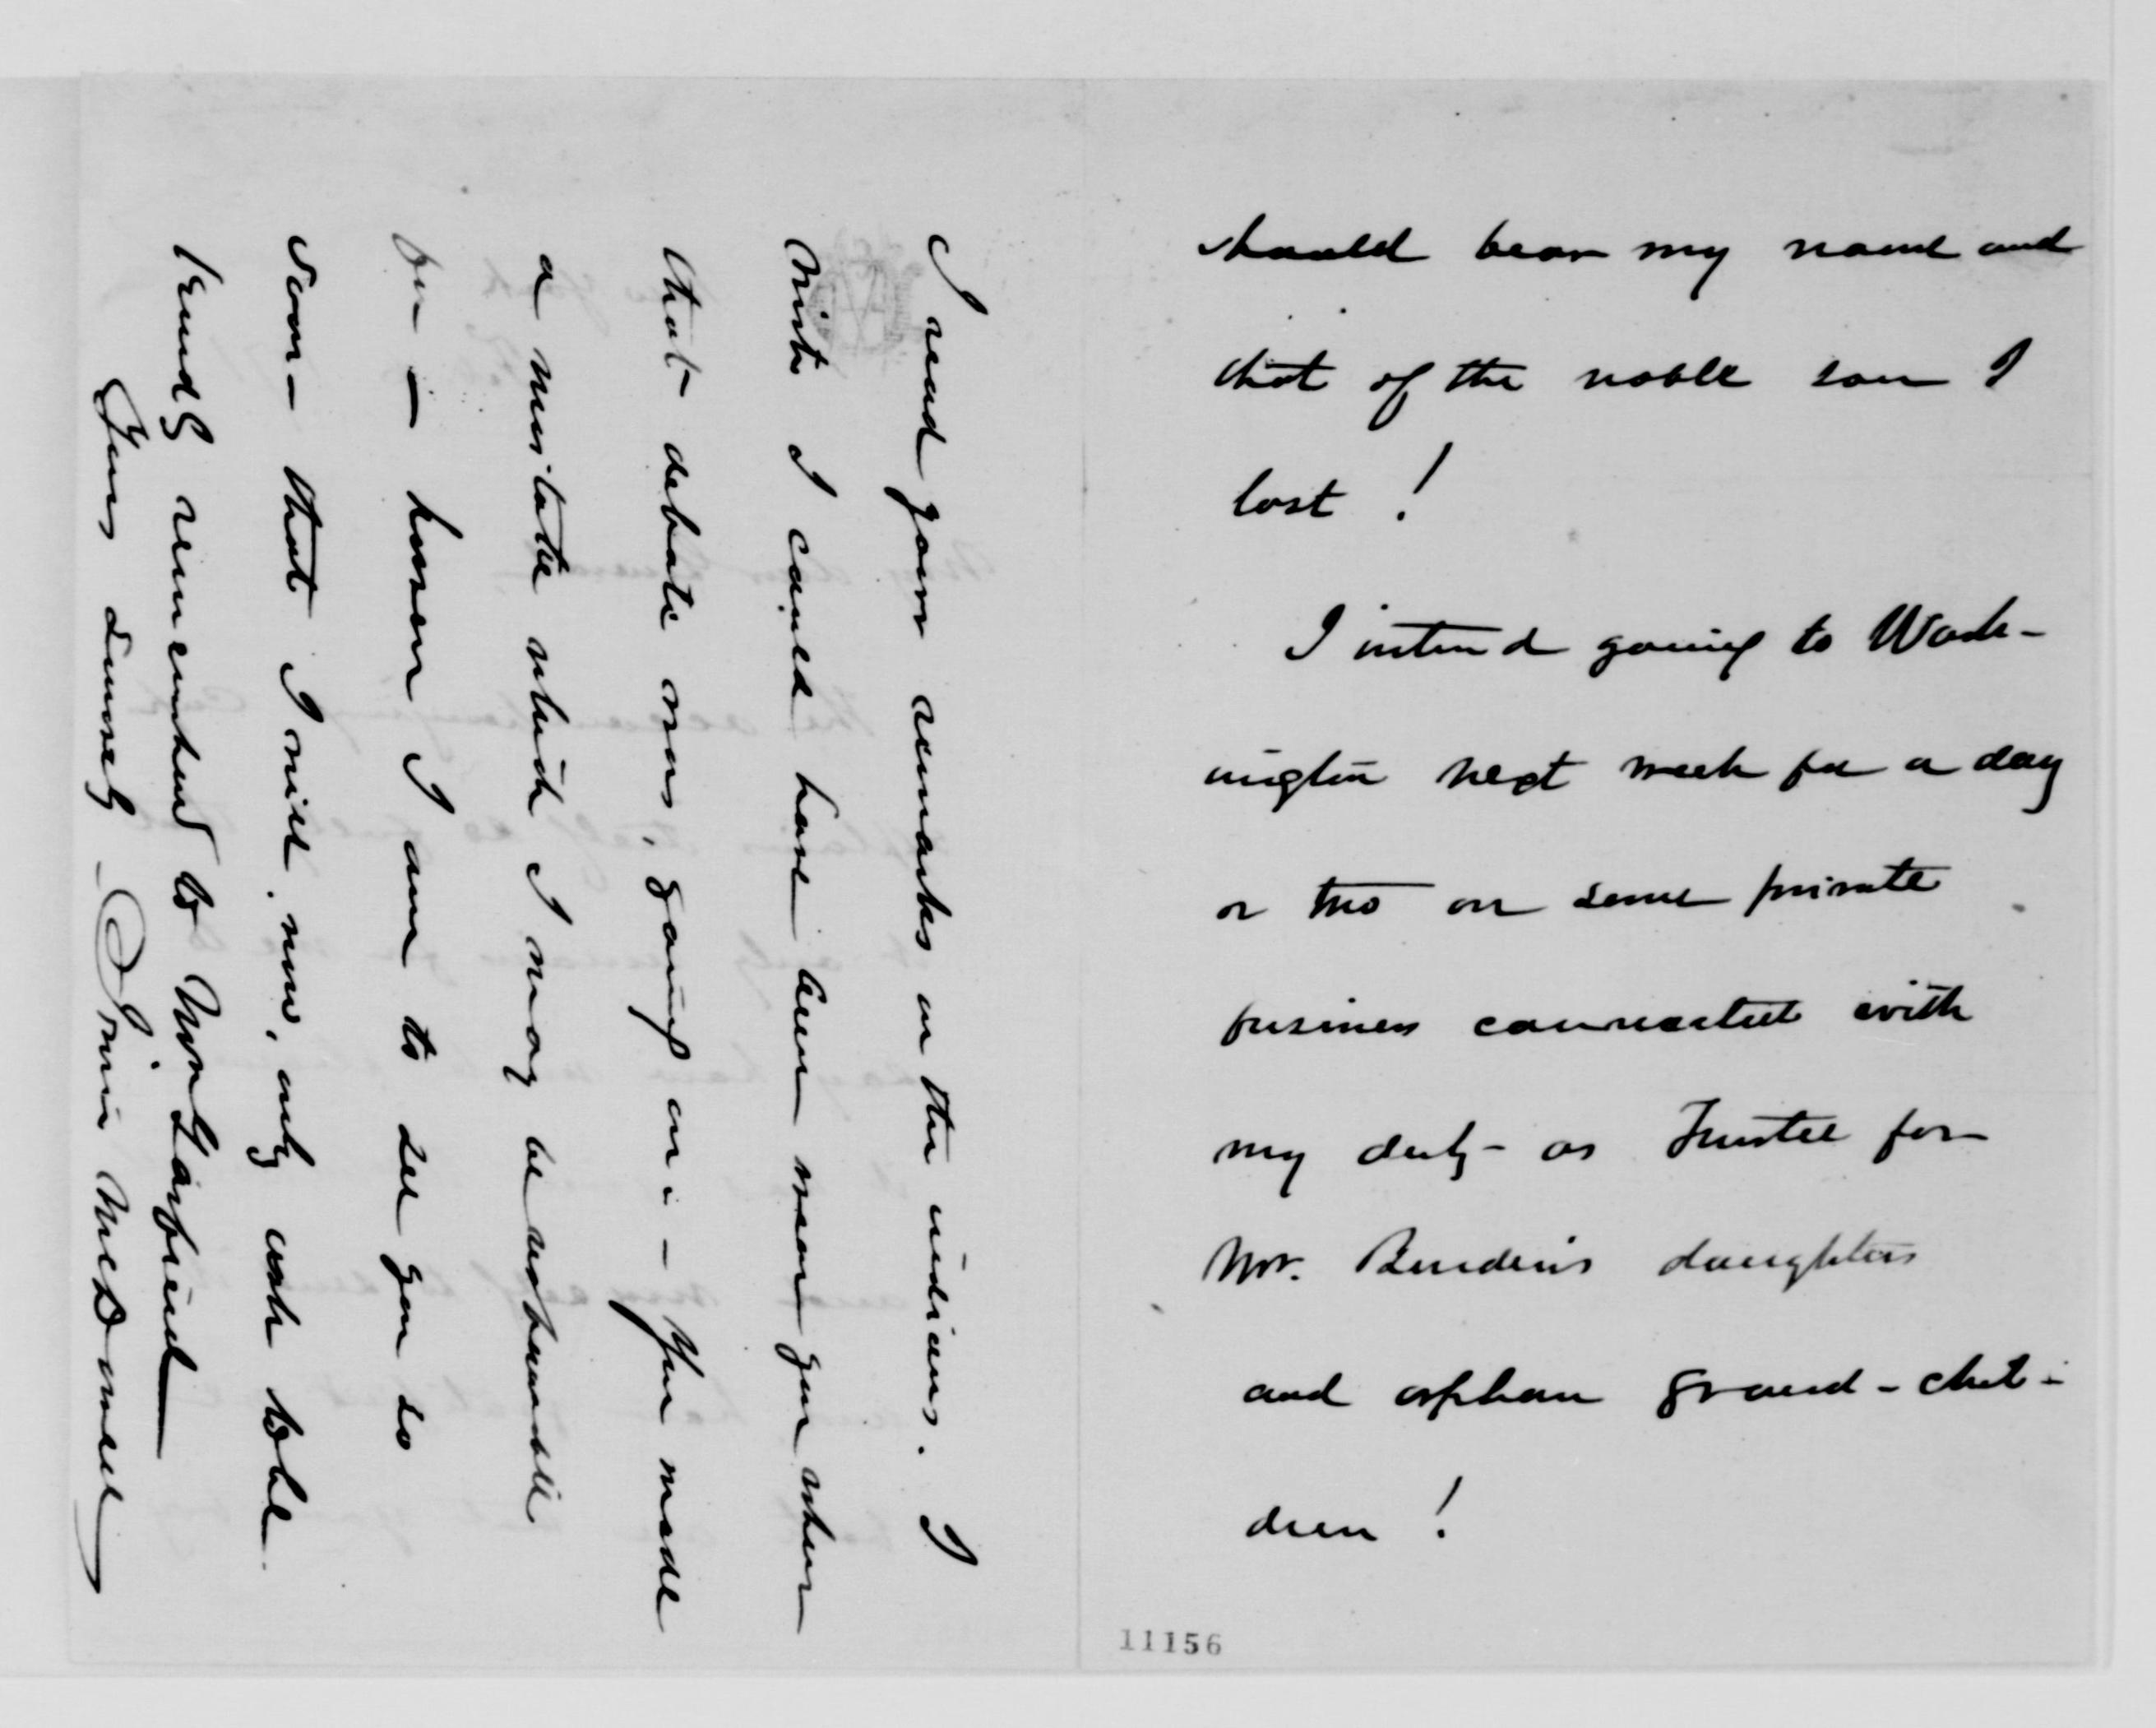 should bear my name and
that of the noble son I
lost !
I intend going to Wash-
ington next week for a day
or two on some private
business connected with
my duty - as Trustee for
Mr. Burden's daughters
and orphan grand-chil-
dren !
11156
I read your remarks on the indians. I
wish I could have been near you when
that debate was going on - You made
a mistake which I may be responsible
for - however I am to see you so
soon - that I will now, only ask to be
kindly remembered to Mrs Garfield
Yours sincerely Irwin McDowell